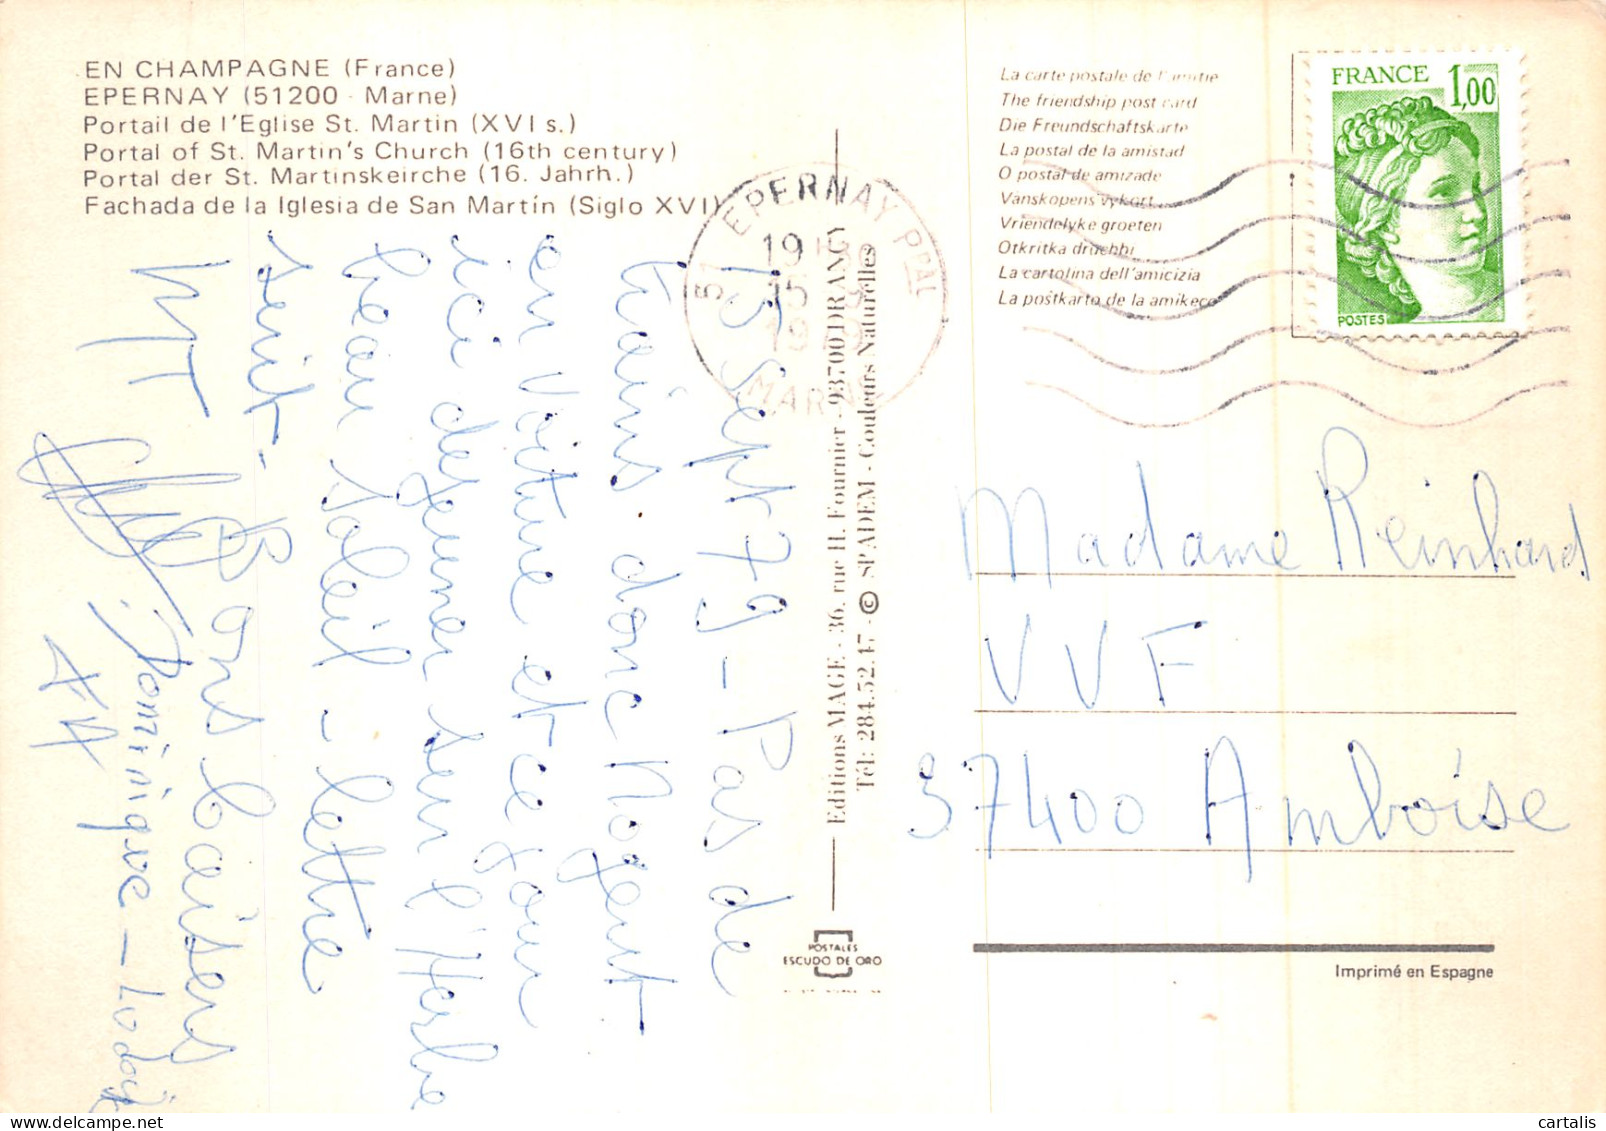 EN CHAMPAGNE (France)
EPERNAY (51200 - Marne)
Portail de l'Eglise St. Martin (XVI s.)
Portal of St. Martin's Church (16th century)
Portal der St. Martinskeirche (16. Jahrh.)
Fachada de la Iglesia de San Martín (Siglo XVI)
15 Sept 79 - Pas de
trains donc Nogent
en voiture et ce jour
ici déjeuner sur l'Herbe
beau soleil - lettre
suit -
Bons baisers
Dominique - Lodoïk
Editions MAGE - 36, rue H. Fournier - 93700 DRANCY
Tél: 284.52.47 - © SPADEM - Couleurs Naturelles
POSTALES
ESCUDO DE ORO
51 EPERNAY PPAL
19 H
15 - 9
1979
MARNE
La carte postale de l'amitié
The friendship post card
Die Freundschaftskarte
La postal de la amistad
O postal de amizade
Vanskopens vykort
Vriendelyke groeten
Otkritka druchbi
La cartolina dell'amicizia
La poŝtkarto de la amikeco
FRANCE 1,00
POSTES
Madame Reinhard
VVF
37400 Amboise
Imprimé en Espagne
cartalis